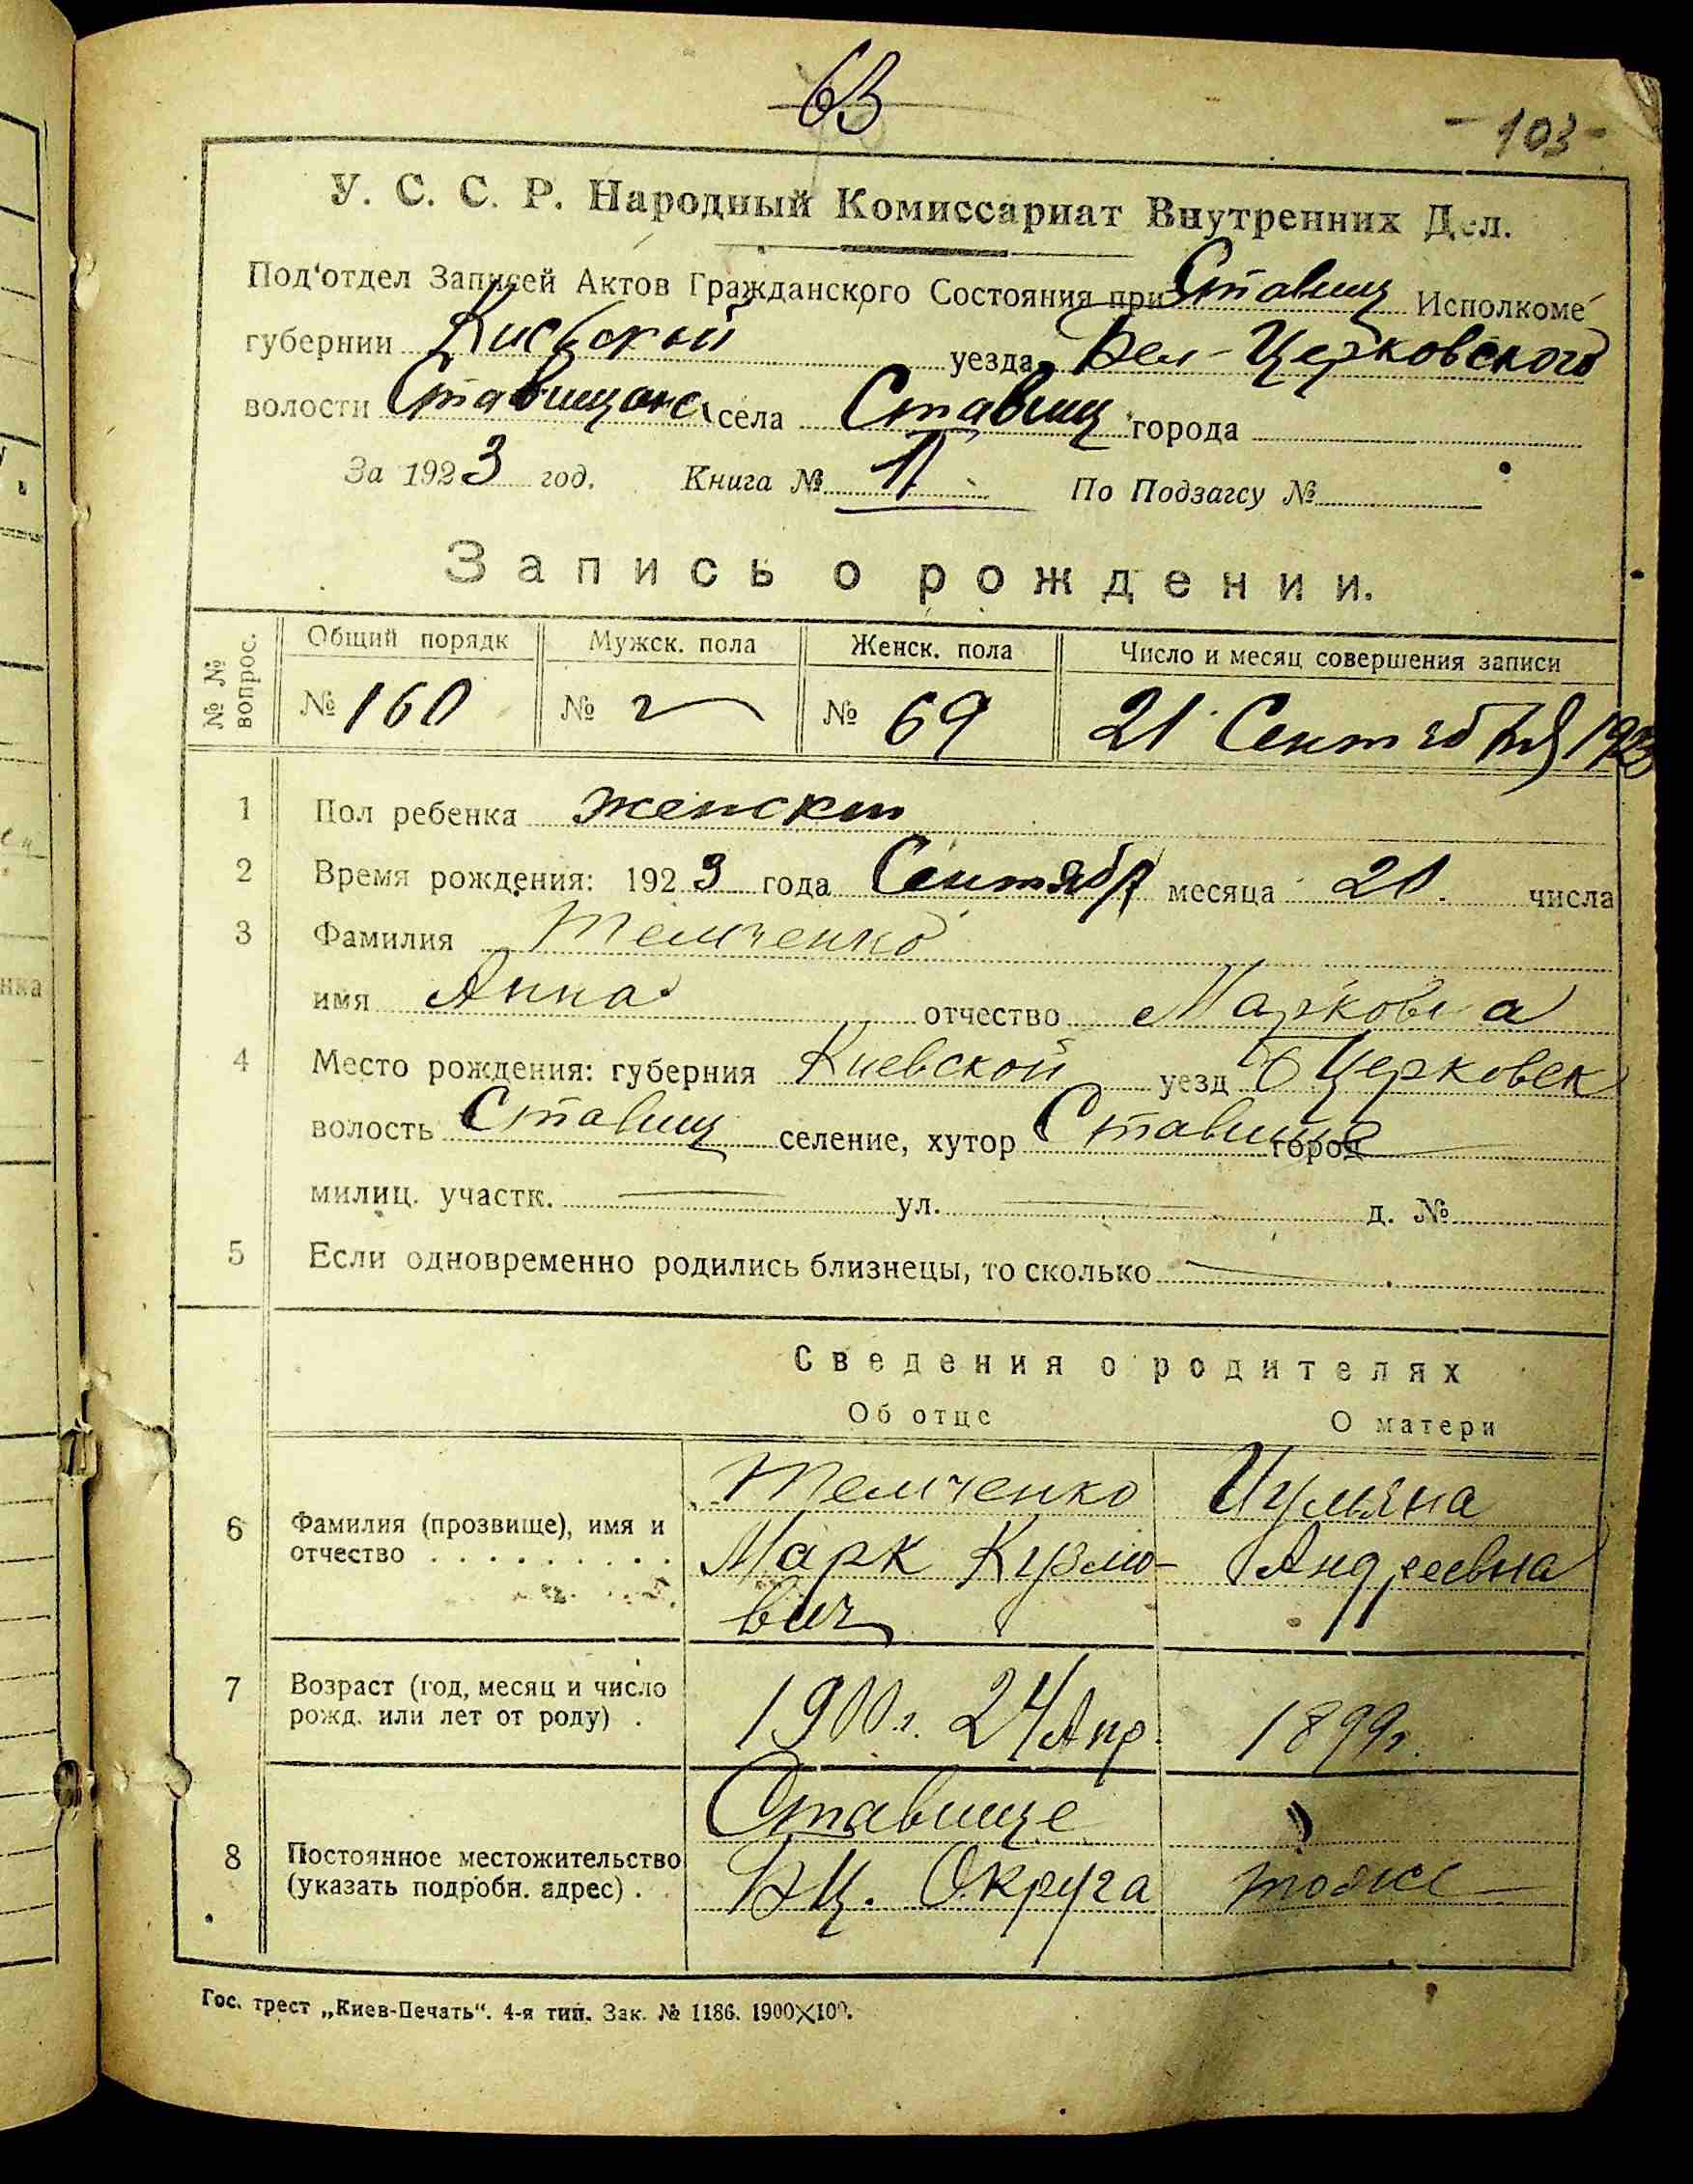 63
- 103 -
У. С. С. Р. Народный Комиссариат Внутренних Дел.
Под'отдел Записей Актов Гражданского Состояния при Ставищ Исполкоме
губернии Киевской уезда Бел-Церковского
волости села Ставищ города
За 1923 год. Книга № По Подзагсу №
Запись о рождении.
№ № вопрос.
Общий порядк Мужск. пола Женск. пола Число и месяц совершения записи
№ 160 № № 69 21 Сентября 1923
1 Пол ребенка женский
2 Время рождения: 1923 года Сентября месяца 20 числа
3 Фамилия Темченко
имя Анна отчество Марковна
4 Место рождения: губерния Киевской уезд Б Церковск
волость Ставищ селение, хутор Ставище город
милиц. участк. ул. д. №
5 Если одновременно родились близнецы, то сколько
Сведения о родителях
Об отце О матери
6 Фамилия (прозвище), имя и отчество
Темченко
Марк Кузмо-
вич
Иульяна
Андреевна
7 Возраст (год, месяц и число рожд. или лет от роду)
1900г. 24 Апр.
1899г.
8 Постоянное местожительство (указать подробн. адрес)
Ставище
БЦ. Округа
тоже
Гос. трест „Киев-Печать". 4-я тип. Зак. № 1186. 1900×100.